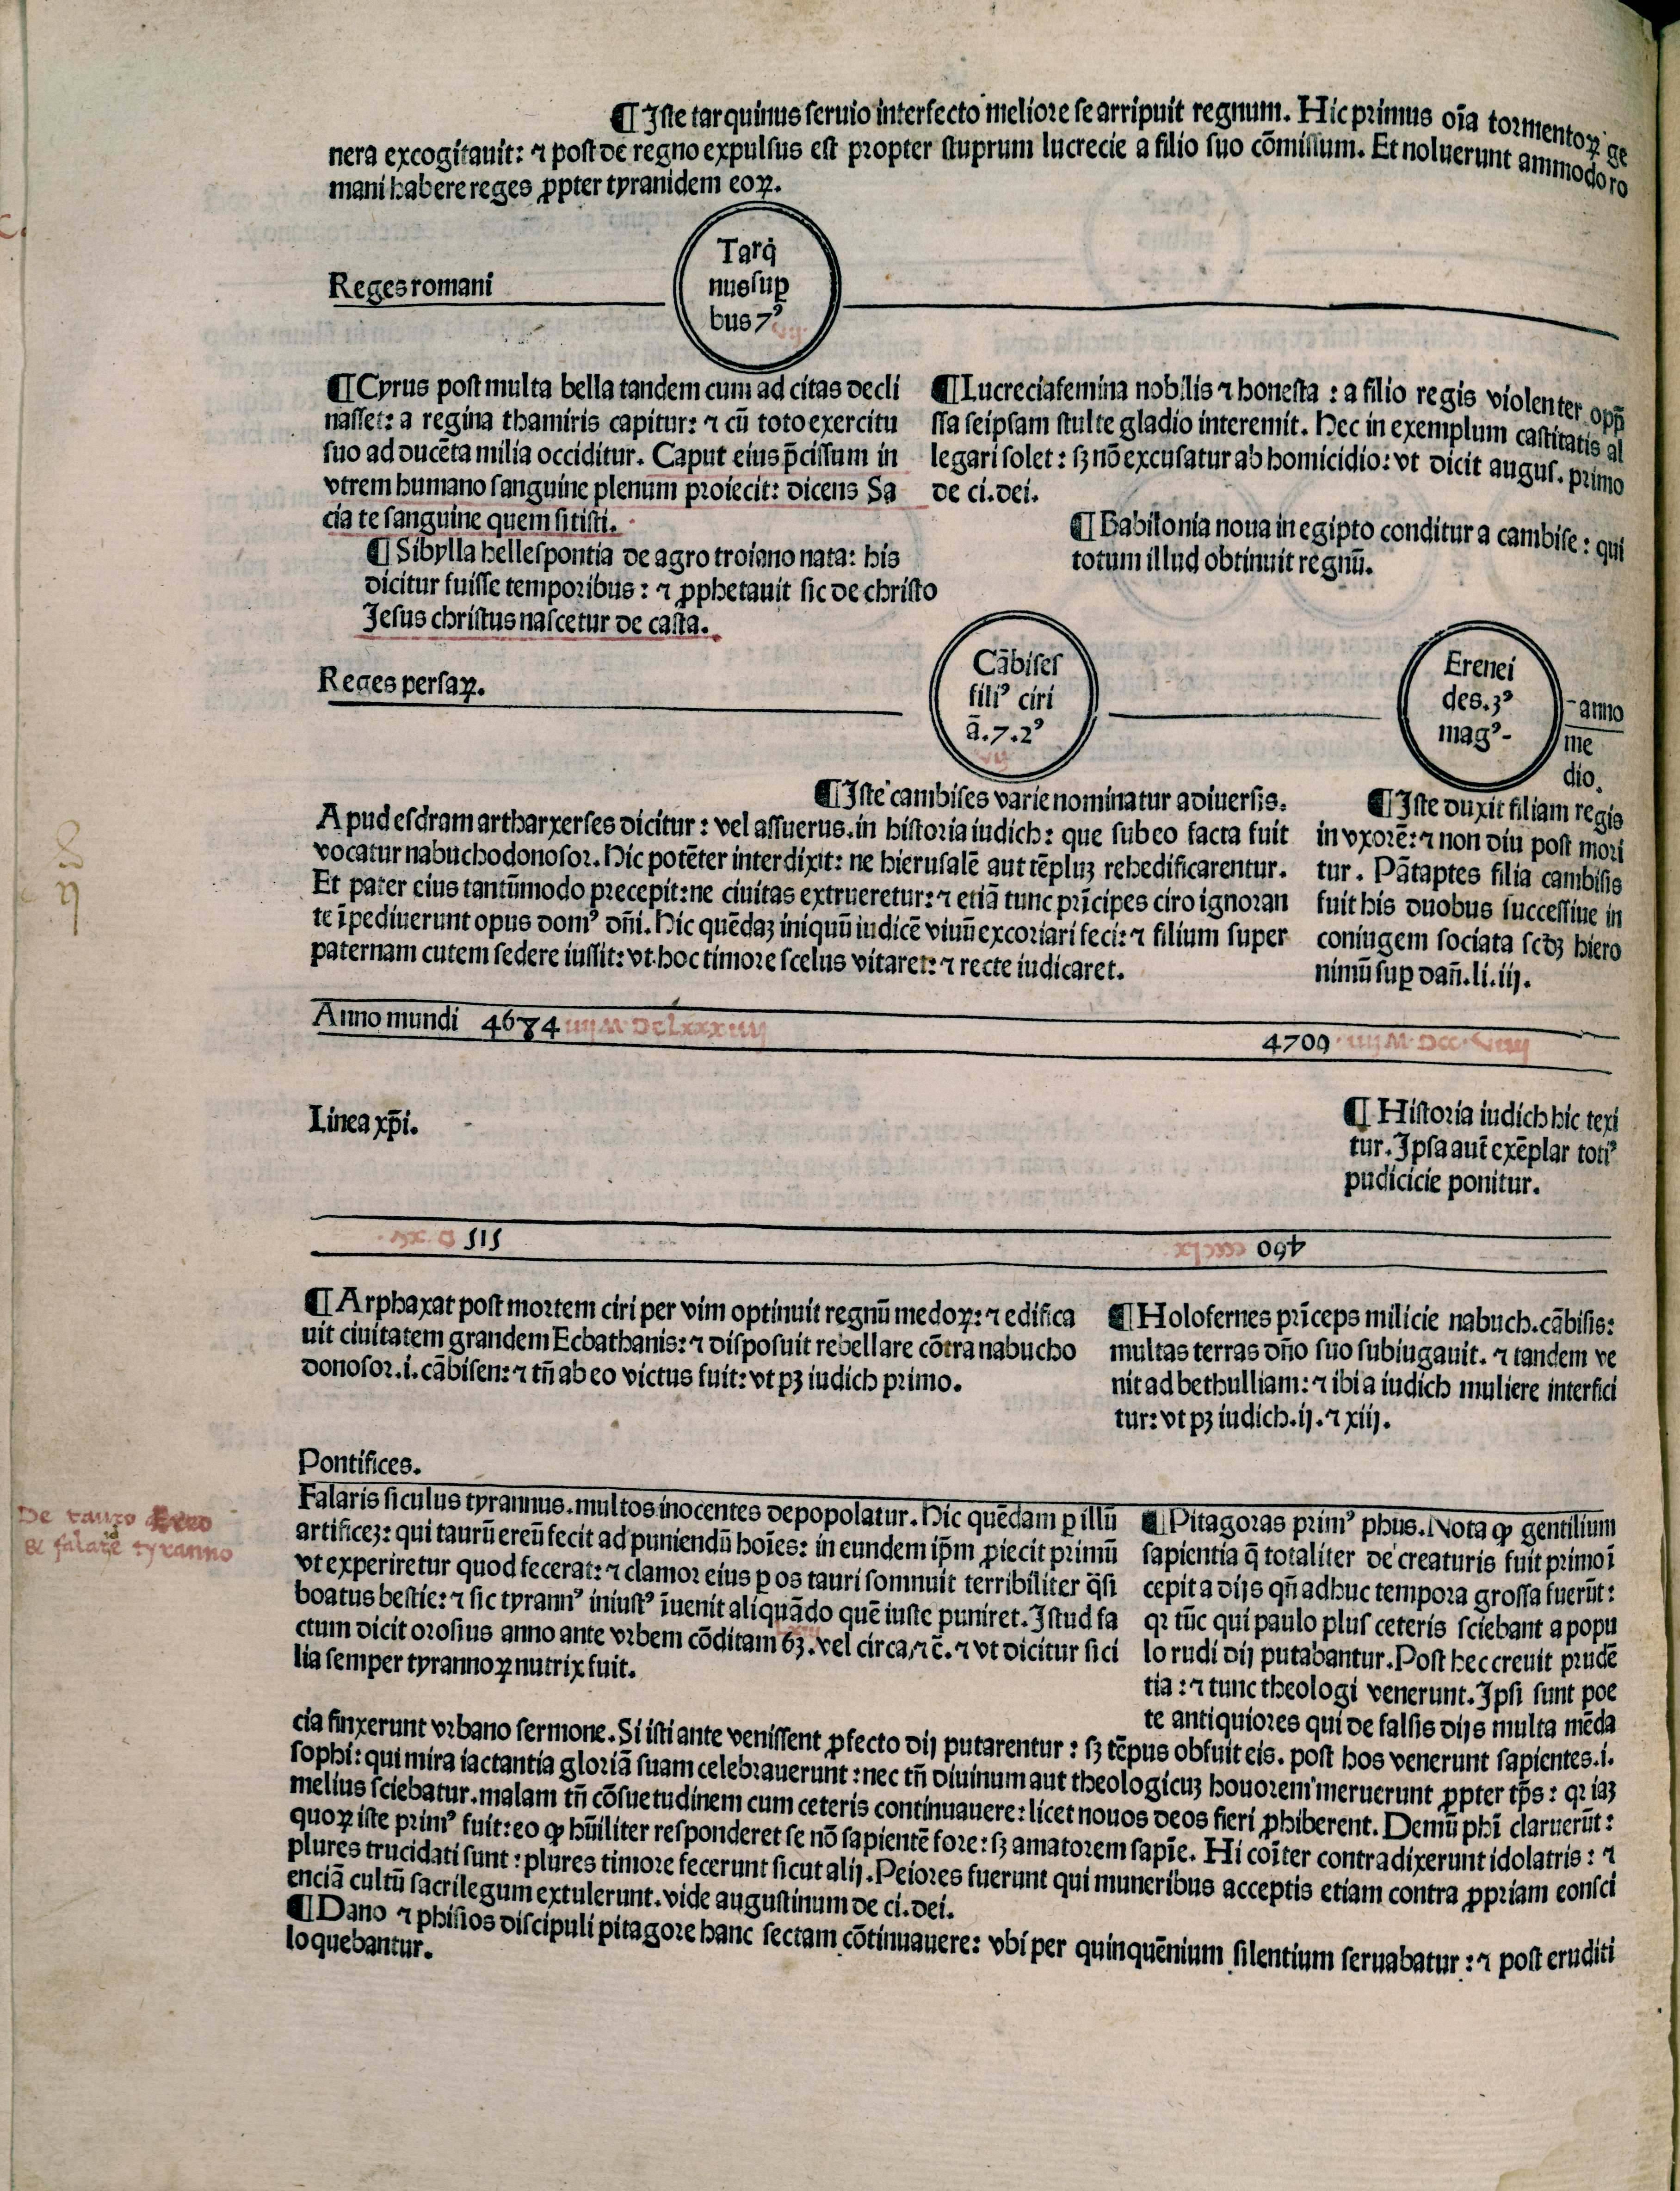 ¶ Iste tarquinus seruio interfecto meliore se arripuit regnum. Hic primus oīa tormentoꝝ ge
nera excogitauit: ⁊ post de regno expulsus est propter stuprum lucrecie a filio suo cōmissum. Et noluerunt ammodo ro
mani habere reges ꝓpter tyranidem eoꝝ.
Tarq̇
nus suꝑ
bus 7ꝰ
Reges romani
¶ Cyrus post multa bella tandem cum ad citas decli
nasset: a regina thamiris capitur: ⁊ cū toto exercitu
suo ad ducēta milia occiditur. Caput eius p̄cissum in
vtrem humano sanguine plenum proiecit: dicens Sa
cia te sanguine quem sitisti.
¶ Sibylla hellespontia de agro troiano nata: his
dicitur fuisse temporibus: ⁊ ꝓphetauit sic de christo
Jesus christus nascetur de casta.
¶ Lucrecia femina nobilis ⁊ honesta: a filio regis violenter opp̄
ssa seipsam stulte gladio interemit. Hec in exemplum castitatis al
legari solet: sꝫ nō excusatur ab homicidio: vt dicit augus. primo
de ci. dei.
¶ Babilonia noua in egipto conditur a cambise: qui
totum illud obtinuit regnū.
Reges persaꝝ.
Cābises
filiꝰ ciri
ā. 7. 2ꝰ
Erenei
des. 3ꝰ
magꝰ-
-anno
me
dio.
¶ Iste cambises varie nominatur a diuersis.
Apud esdram artharxerses dicitur: vel assuerus. in historia iudich: que sub eo facta fuit
vocatur nabuchodonosor. Hic potēter interdixit: ne hierusalē aut tēpluꝫ rehedificarentur.
Et pater eius tantūmodo precepit: ne ciuitas extrueretur: ⁊ etiā tunc prīcipes ciro ignoran
te īpediuerunt opus domꝰ dn̄i. Hic quēdaꝫ iniquū iudicē viuū excoriari feci: ⁊ filium super
paternam cutem sedere iussit: vt hoc timore scelus vitaret: ⁊ recte iudicaret.
¶ Iste duxit filiam regis
in vxorē: ⁊ non diu post mori
tur. Pātaptes filia cambisis
fuit his duobus successiue in
coniugem sociata scd̄ꝫ hiero
nimū suꝑ dan̄. li. iij.
Anno mundi 4684
4709
Linea xp̄i.
¶ Historia iudich hic texi
tur. Ipsa aut̄ exēplar totiꝰ
pudicicie ponitur.
515
490
¶ Arphaxat post mortem ciri per vim optinuit regnū medoꝝ: ⁊ edifica
uit ciuitatem grandem Ecbathanis: ⁊ disposuit rebellare cōtra nabucho
donosor. i. cābisen: ⁊ tn̄ ab eo victus fuit: vt pꝫ iudich primo.
¶ Holofernes prīceps milicie nabuch. cābisis:
multas terras dn̄o suo subiugauit. ⁊ tandem ve
nit ad bethulliam: ⁊ ibi a iudich muliere interfici
tur: vt pꝫ iudich. ij. ⁊ xiij.
Pontifices.
De tauro Ereo
& falare tyranno
Falaris siculus tyrannus. multos inocentes depopolatur. Hic quēdam ꝑ illū
artificeꝫ: qui taurū ereū fecit ad puniendū hoīes: in eundem ip̄m ꝓiecit primū
vt experiretur quod fecerat: ⁊ clamor eius ꝑ os tauri somnuit terribiliter q̄si
boatus bestie: ⁊ sic tyrannꝰ iniustꝰ īuenit aliquādo quē iuste puniret. Istud fa
ctum dicit orosius anno ante vrbem cōditam 63. vel circa, ⁊c̄. ⁊ vt dicitur sici
lia semper tyrannoꝝ nutrix fuit.
¶ Pitagoras primꝰ phus. Nota ꝙ gentilium
sapientia q̄ totaliter de creaturis fuit primo ī
cepit a dijs qn̄ adhuc tempora grossa fuerūt:
qꝛ tūc qui paulo plus ceteris sciebant a popu
lo rudi dij putabantur. Post hec creuit prudē
tia: ⁊ tunc theologi venerunt. Ipsi sunt poe
te antiquiores qui de falsis dijs multa mēda
cia finxerunt vrbano sermone. Si isti ante venissent ꝓfecto dij putarentur: sꝫ tēpus obfuit eis. post hos venerunt sapientes. i.
sophi: qui mira iactantia gloriā suam celebrauerunt: nec tn̄ diuinum aut theologicuꝫ houorem meruerunt ꝓpter tp̄s: qꝛ iaꝫ
melius sciebatur. malam tn̄ cōsuetudinem cum ceteris continuauere: licet nouos deos fieri ꝓhiberent. Demū phī claruerūt:
quoꝝ iste primꝰ fuit: eo ꝙ hūiliter responderet se nō sapientē fore: sꝫ amatorem sapīe. Hi coīter contradixerunt idolatris: ⁊
plures trucidati sunt: plures timore fecerunt sicut alij. Peiores fuerunt qui muneribus acceptis etiam contra ꝓpriam consci
enciā cultū sacrilegum extulerunt. vide augustinum de ci. dei.
¶ Dano ⁊ phisios discipuli pitagore hanc sectam cōtinuauere: vbi per quinquēnium silentium seruabatur: ⁊ post eruditi
loquebantur.